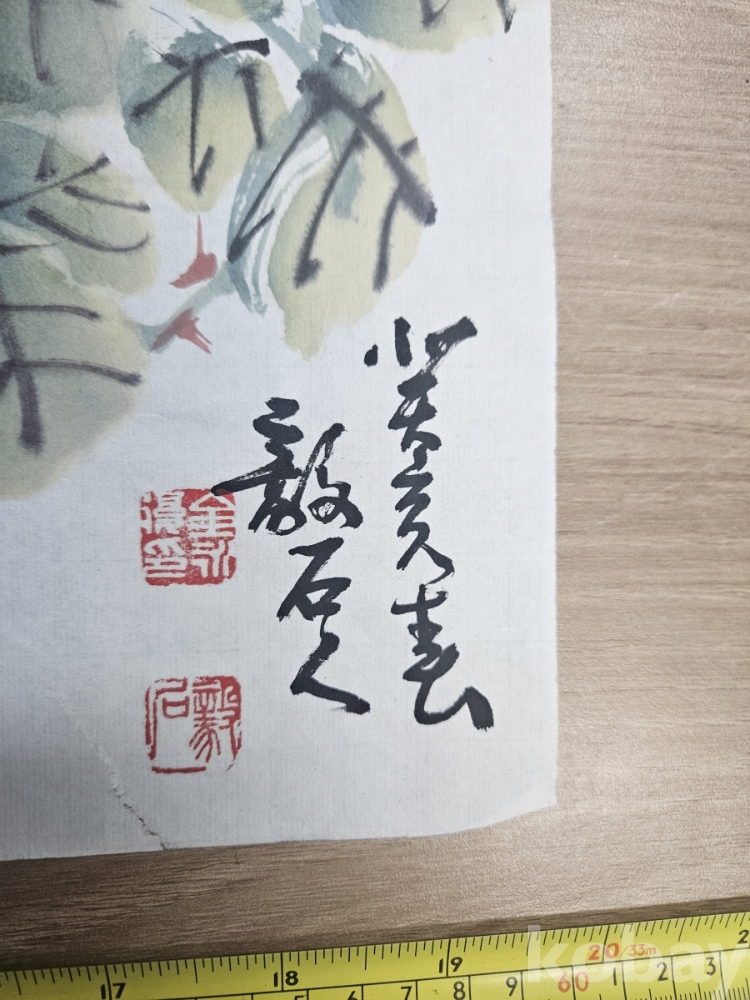 癸亥春
毅石人
毅石
17 18 19 20/33m 2
5 6 7 8 9 60 1 2 3
kobay